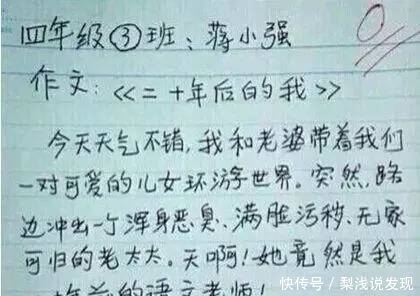 四年级③班：蒋小强
0
作文：<<二十年后的我>>
今天天气不错，我和老婆带着我们
一对可爱的儿女环游世界。突然，路
边冲出一个浑身恶臭、满脸污秽、无家
可归的老太太。天啊！她竟然是我
年前的语文老师！
快传号 / 梨浅说发现